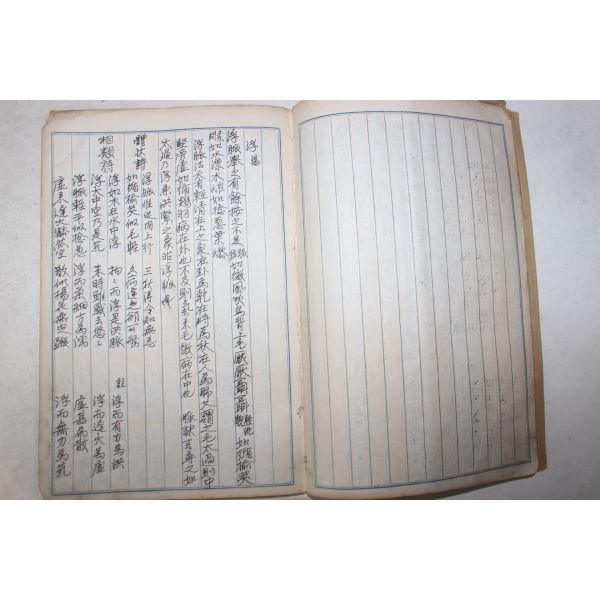 浮 陽
浮脈擧之有餘按之不足 如微風吹鳥背上毛 厭厭聶聶 如循榆莢
如水漂木 如捻葱葉
浮脈法天有輕淸在上之象在卦爲乾在時爲秋在人爲肺又謂之毛太過則中
堅旁虛如循鷄羽病在外也不及則氣來毛微病在中也 脈訣言尋之如
太過乃浮兼洪緊之象非浮脈
體狀詩 浮脈惟從肉上行 三秋得令知無恙
如循榆莢似毛輕 久病逢之却可驚
相類詩 浮如木在水中浮 拍拍而浮是洪脈 註 浮而有力爲洪
浮大中空乃是芤 來時雖盛去悠悠 浮而遲大爲虛
浮脈輕平似捻葱 浮而柔細方爲濡 虛甚爲散
虛來遲大豁然空 散似楊花無定蹤 浮而無力爲芤